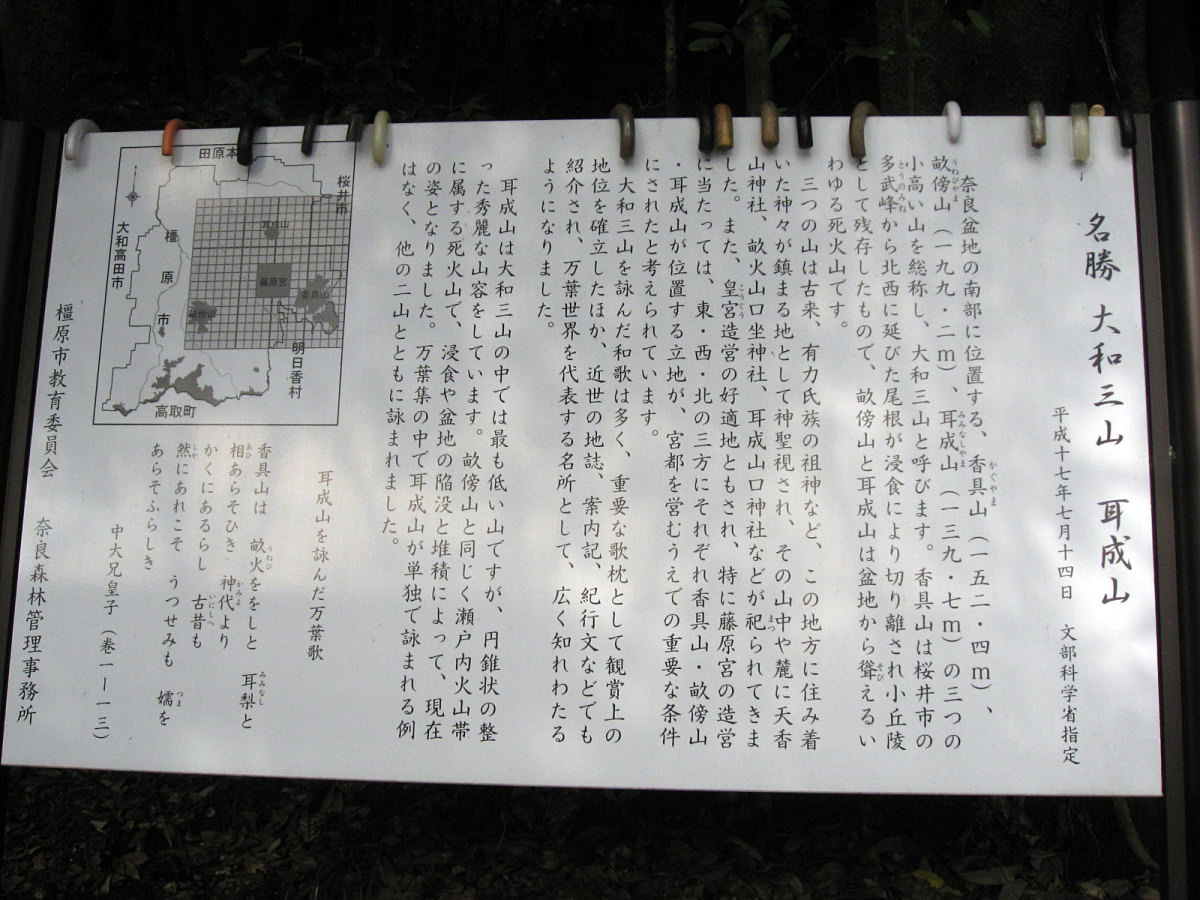 名勝 大和三山 耳成山
平成十七年七月十四日 文部科学省指定
奈良盆地の南部に位置する、香具山（一五二・四m）、
畝傍山（一九九・二m）、耳成山（一三九・七m）の三つの
小高い山を総称し、大和三山と呼びます。香具山は桜井市の
多武峰から北西に延びた尾根が浸食により切り離され小丘陵
として残存したもので、畝傍山と耳成山は盆地から聳えるい
わゆる死火山です。
三つの山は古来、有力氏族の祖神など、この地方に住み着
いた神々が鎮まる地として神聖視され、その山中や麓に天香
山神社、畝火山口坐神社、耳成山口神社などが祀られてきま
した。また、皇宮造営の好適地ともされ、特に藤原宮の造営
に当たっては、東・西・北の三方にそれぞれ香具山・畝傍山
・耳成山が位置する立地が、宮都を営むうえでの重要な条件
にされたと考えられています。
大和三山を詠んだ和歌は多く、重要な歌枕として観賞上の
地位を確立したほか、近世の地誌、案内記、紀行文などでも
紹介され、万葉世界を代表する名所として、広く知れわたる
ようになりました。
耳成山は大和三山の中では最も低い山ですが、円錐状の整
った秀麗な山容をしています。畝傍山と同じく瀬戸内火山帯
に属する死火山で、浸食や盆地の陥没と堆積によって、現在
の姿となりました。万葉集の中で耳成山が単独で詠まれる例
はなく、他の二山とともに詠まれました。
田原本
桜井市
大和高田市
橿原市
耳成山
藤原宮
香具山
畝傍山
明日香村
高取町
耳成山を詠んだ万葉歌
香具山は 畝火ををしと 耳梨と
相あらそひき 神代より
かくにあるらし 古昔も
然にあれこそ うつせみも 嬬を
あらそふらしき
中大兄皇子（巻一―一三）
橿原市教育委員会
奈良森林管理事務所